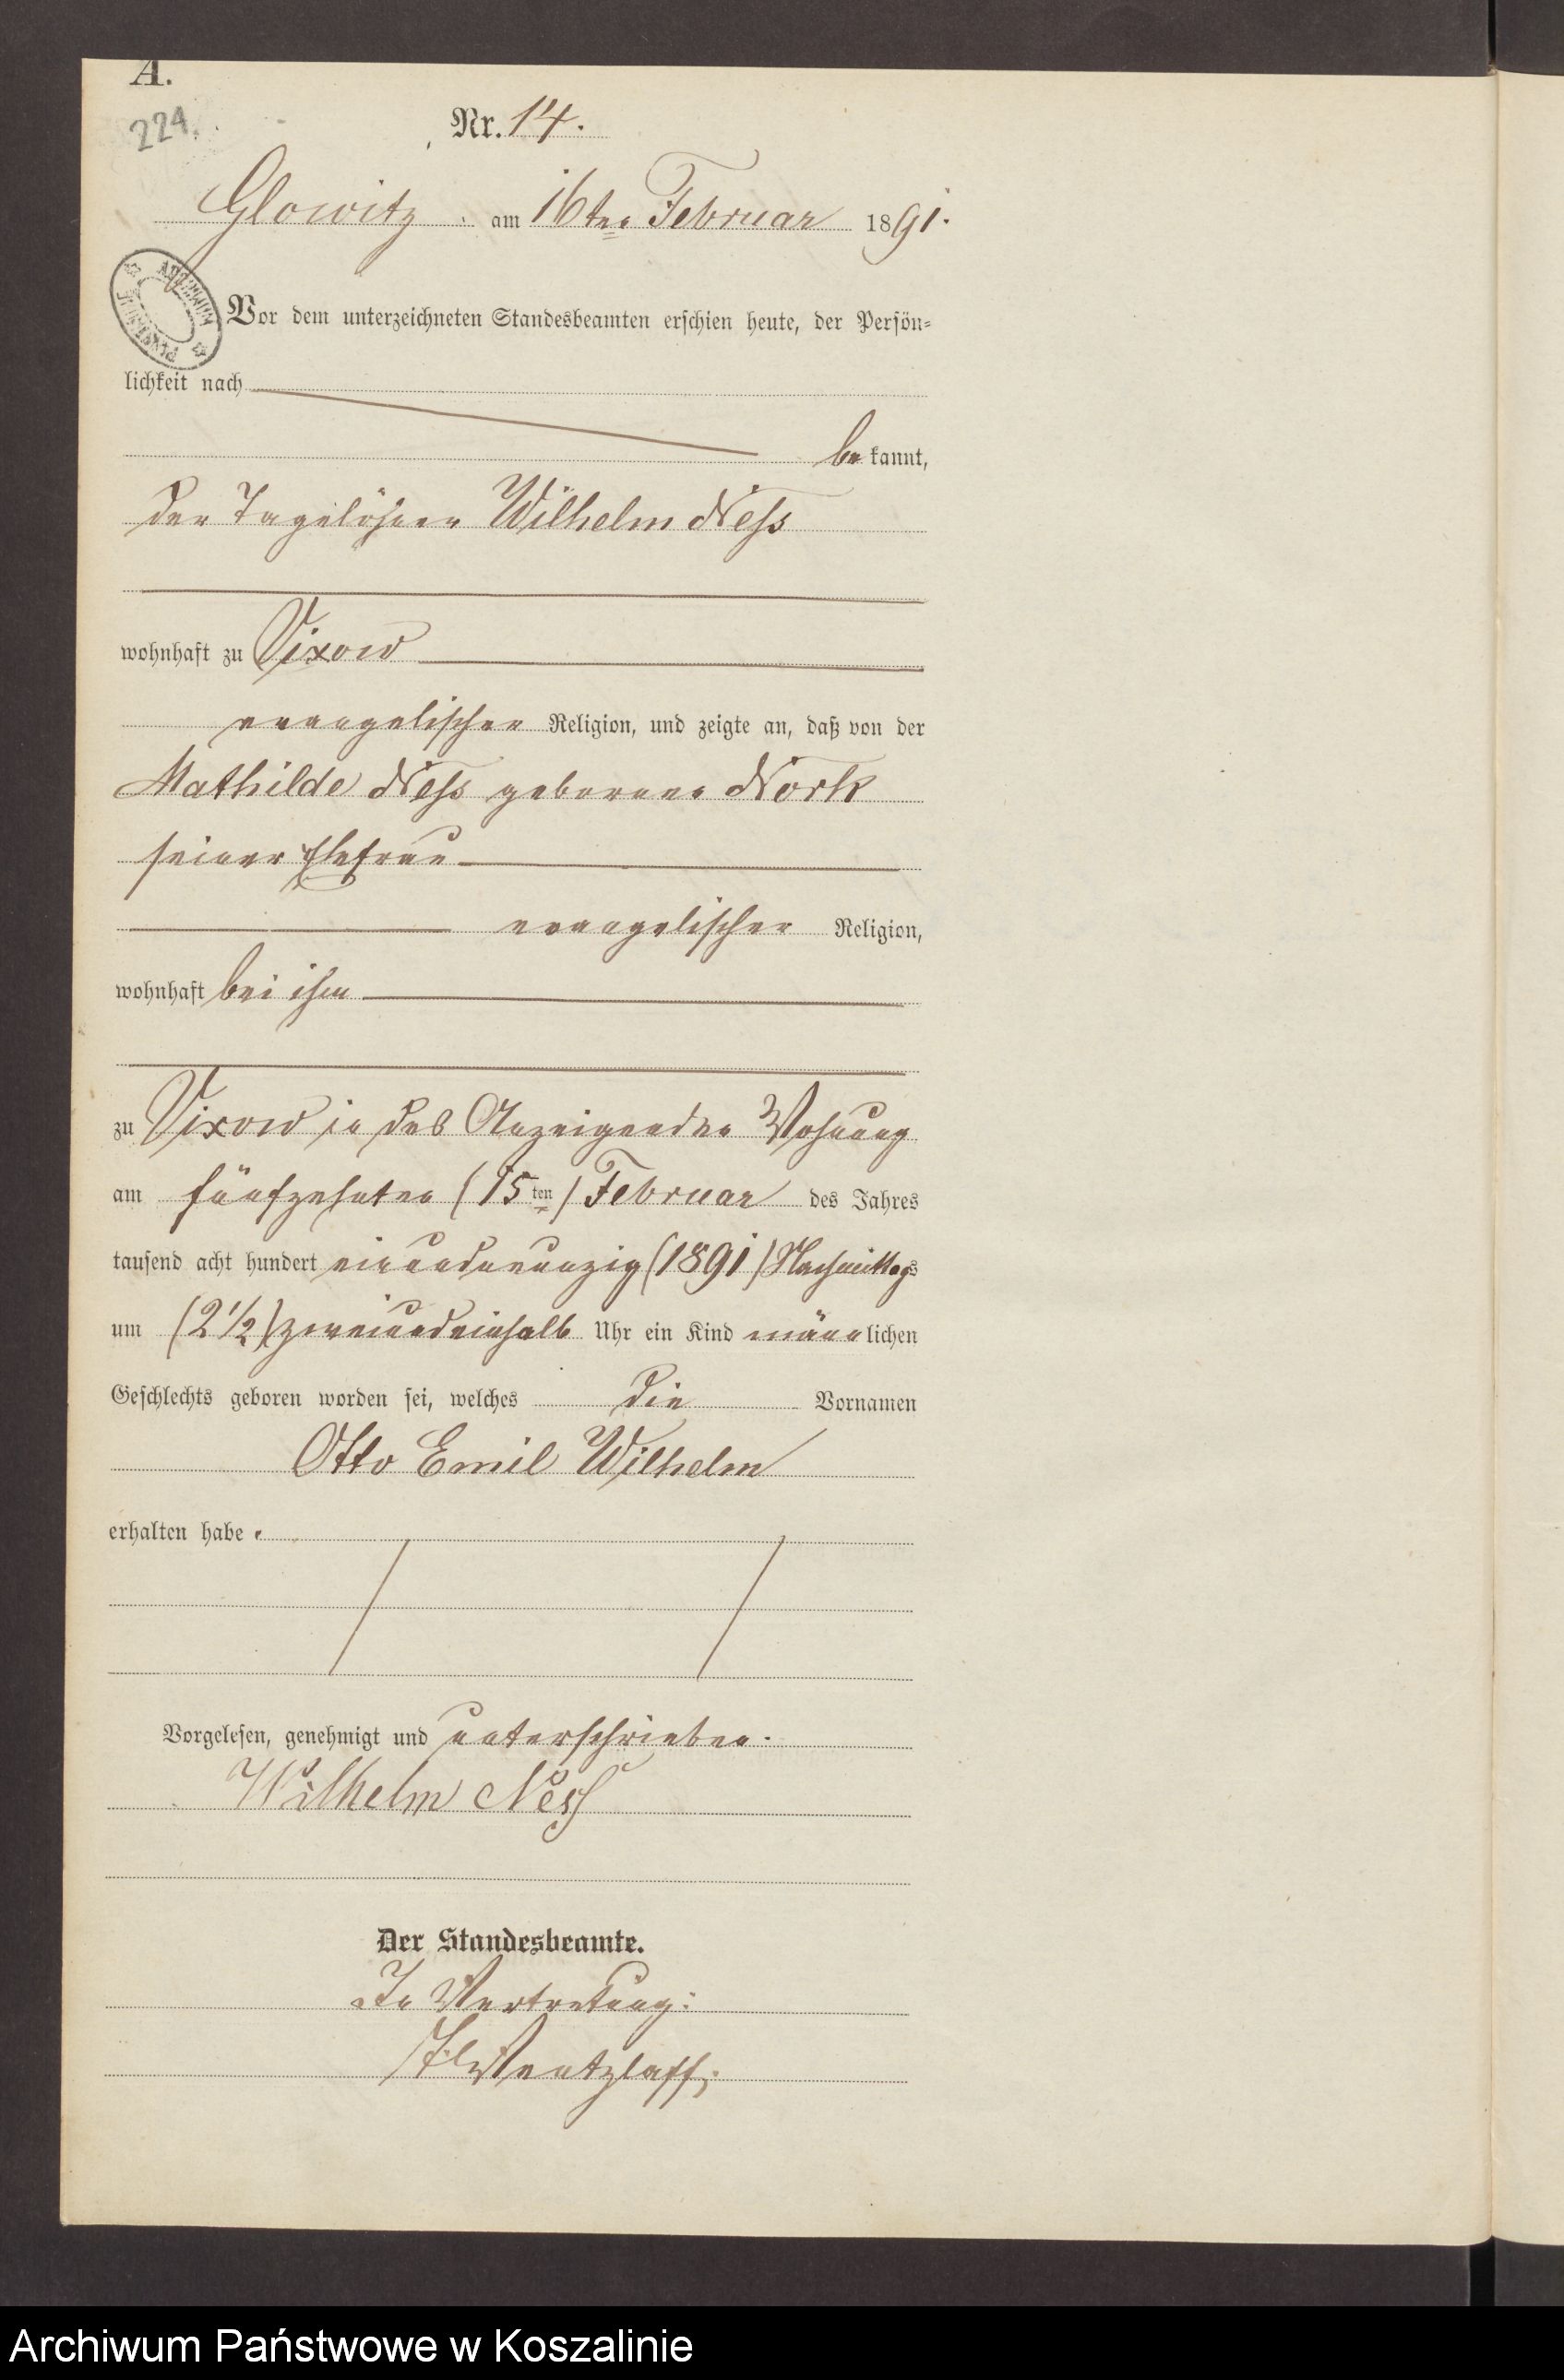 A.
224.
Nr. 14.
Glowitz am 16ten Februar 1891.
Vor dem unterzeichneten Standesbeamten erschien heute, der Persön=
lichkeit nach
bekannt,
der Tagelöhner Wilhelm Ness
wohnhaft zu Vixow
evangelischer Religion, und zeigte an, daß von der
Mathilde Ness geborene Nork
seiner Ehefrau
evangelischer Religion,
wohnhaft bei ihm
zu Vixow in des Anzeigenden Wohnung
am fünfzehnten (15ten) Februar des Jahres
tausend acht hundert einundneunzig (1891) Nachmittags
um (2 1/2) zweiundeinhalb Uhr ein Kind männlichen
Geschlechts geboren worden sei, welches die Vornamen
Otto Emil Wilhelm
erhalten habe.
Vorgelesen, genehmigt und unterschrieben.
Wilhelm Ness
Der Standesbeamte.
In Vertretung:
Wentzlaff.
Archiwum Państwowe w Koszalinie